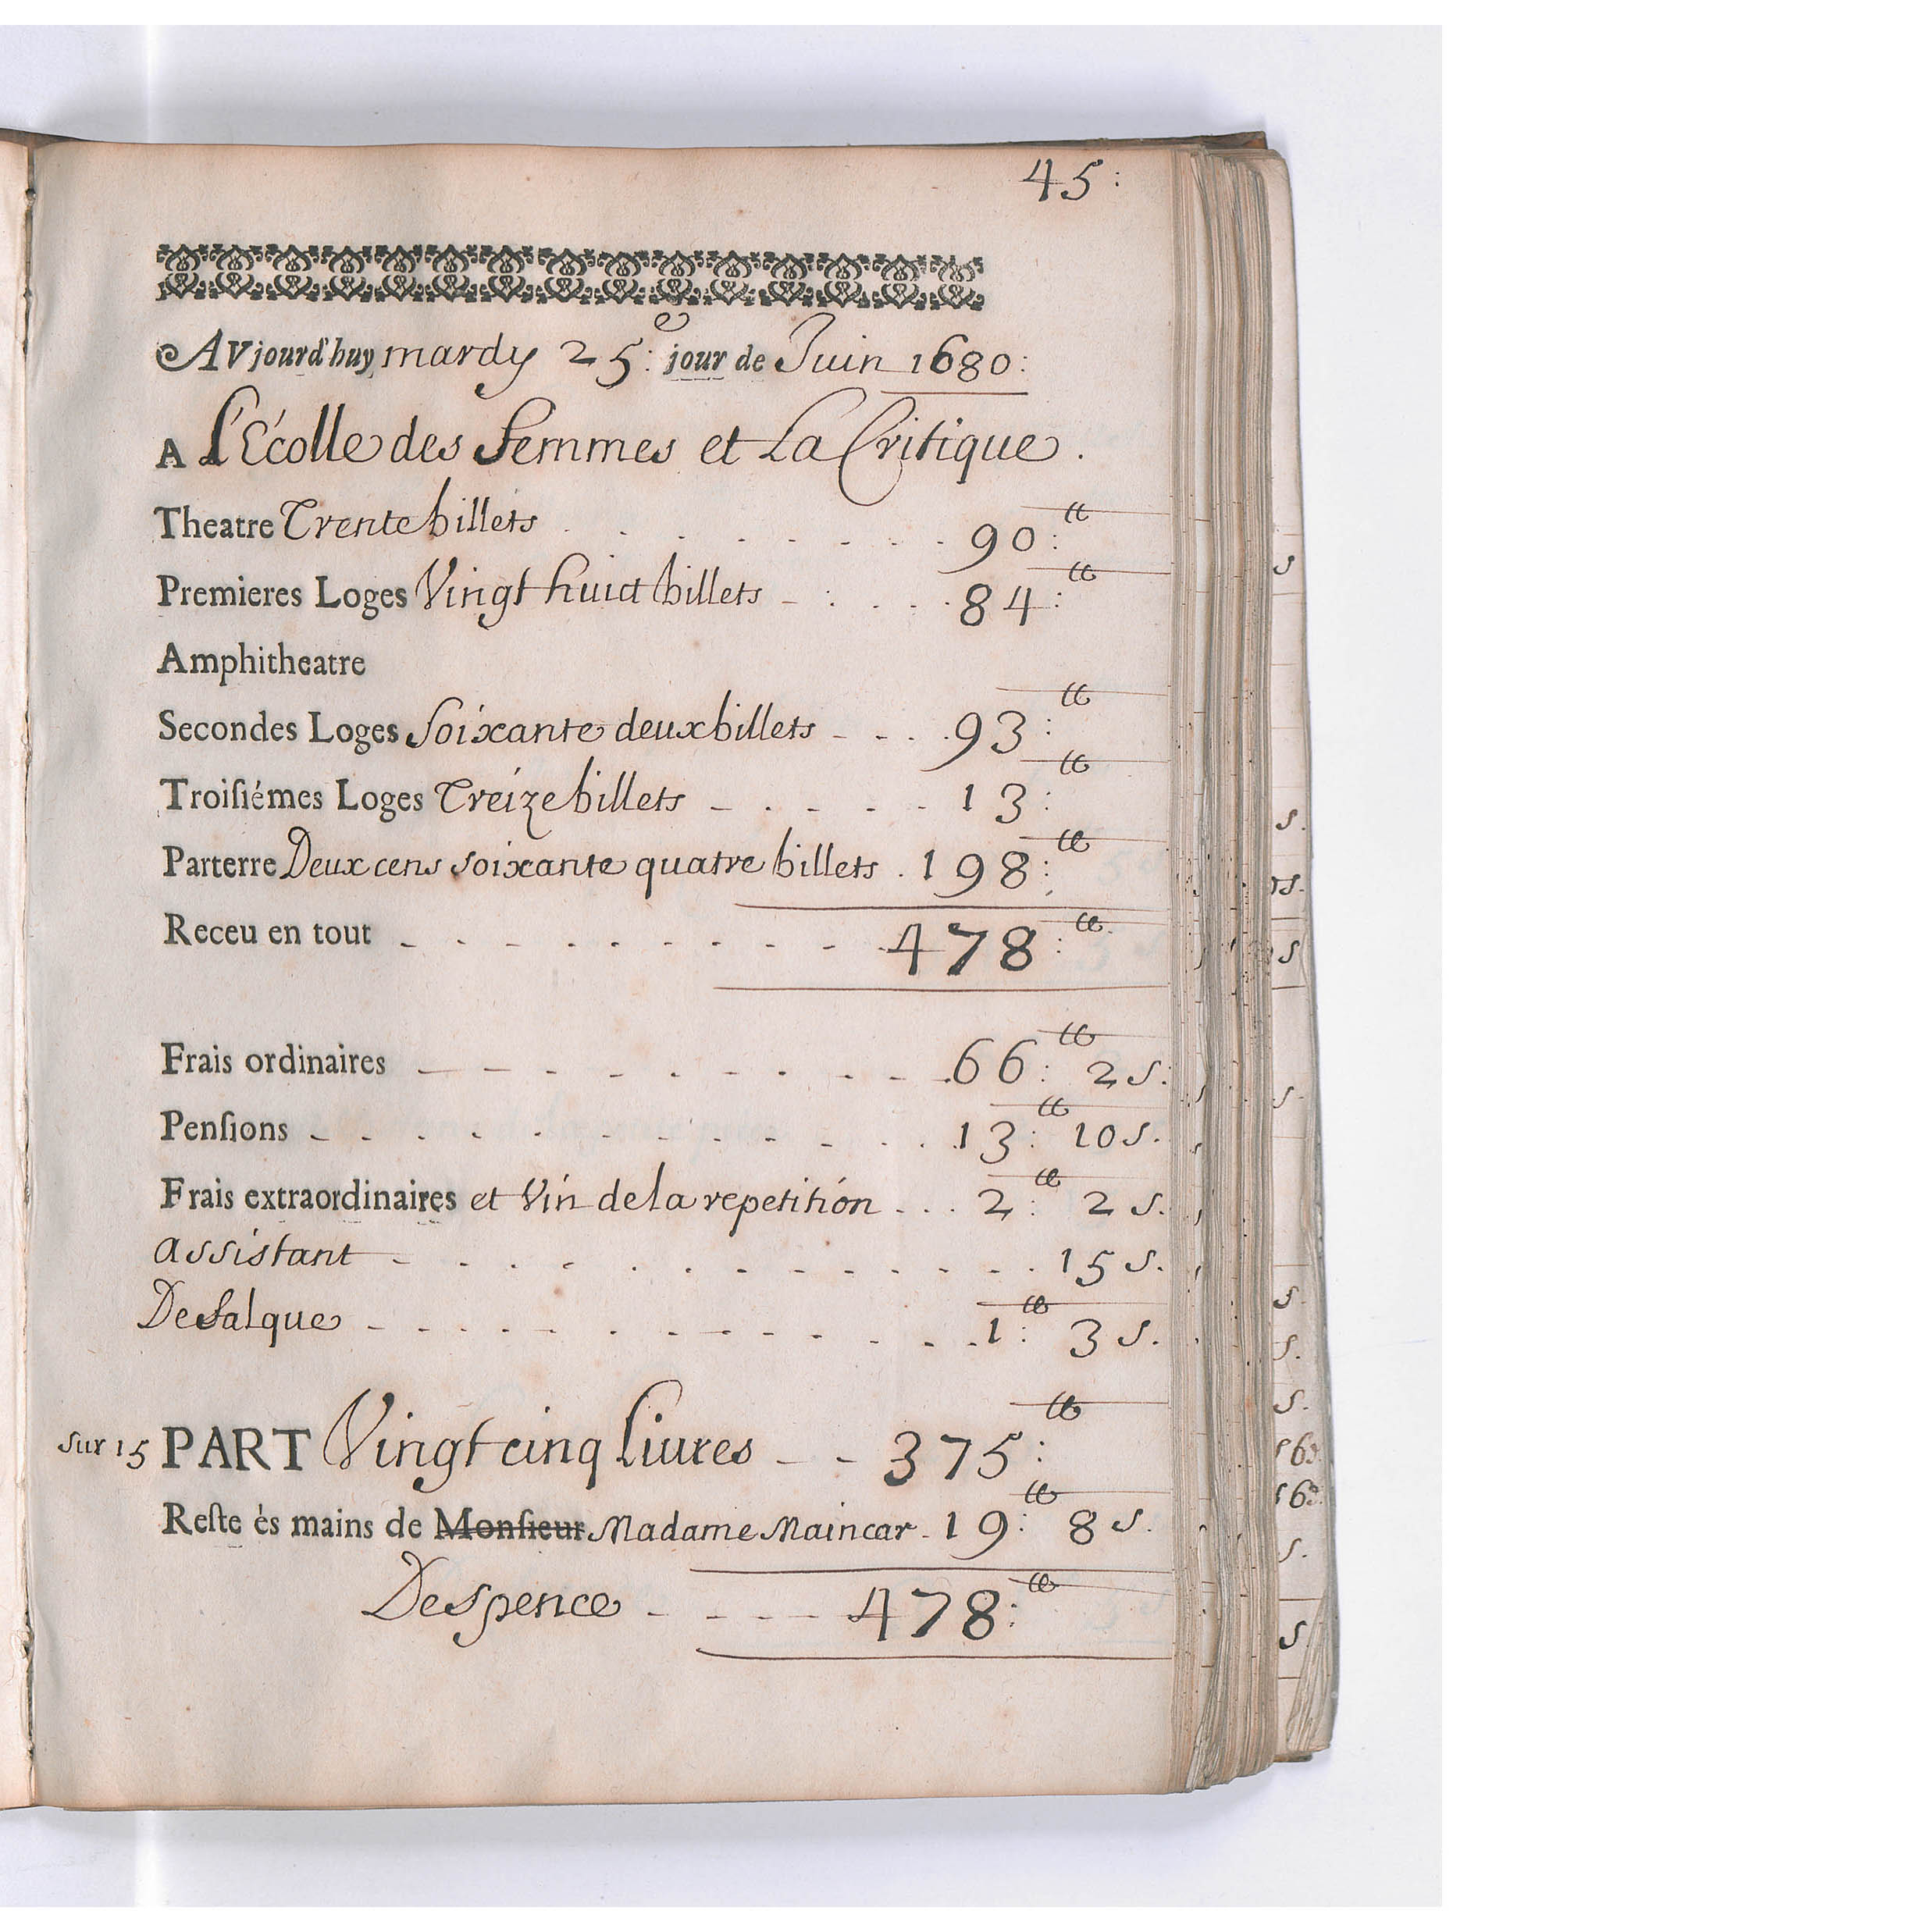 45:
AVjourd'huy mardy 25:e jour de Juin 1680:
A L'Ecolle des femmes et La Critique.
Theatre Trente billets . . . . . . . 90: ₶
Premieres Loges Vingt huict billets - : . . . 84: ₶
Amphitheatre
Secondes Loges Soixante deux billets - - . . 93: ₶
Troisiémes Loges Treize billets - . - . - - 13: ₶
Parterre Deux cens soixante quatre billets . 198: ₶
Receu en tout - . - . . . . - - 478: ₶
Frais ordinaires - - - . . . . . - - 66: ₶ 2 s.
Pensions - . . . . . . . . . . 13: ₶ 10 s.
Frais extraordinaires et Vin de la repetition . . . 2: ₶ 2 s.
assistant - . . . . . . . . . . . 15 s.
Defalque - . . . . . . . . . . 1: ₶ 3 s.
sur 15 PART Vingt cinq Liures - - - 375: ₶
Reste és mains de Monsieur Madame Maincar . 19: ₶ 8 s.
Despence - - - - - 478: ₶